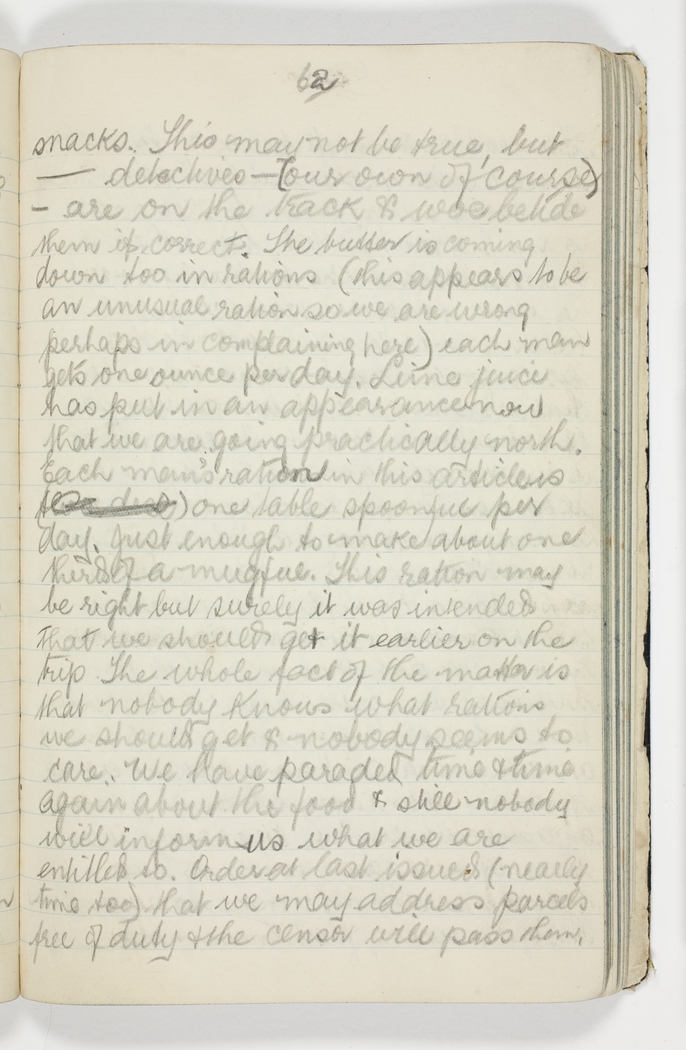 62
snacks. This may not be true, but
— detectives — (our own of course)
- are on the track & woe betide
them if correct. The butter is coming
down too in rations (this appears to be
an unusual ration so we are wrong
perhaps in complaining here) each man
gets one ounce per day. Lime juice
has put in an appearance now
that we are going practically north.
Each man's ration in this article is
one table spoonful per
day. Just enough to make about one
third of a mugful. This ration may
be right but surely it was intended
that we should get it earlier on the
trip. The whole fact of the matter is
that nobody knows what rations
we should get & nobody seems to
care. We have paraded time & time
again about the food & still nobody
will inform us what we are
entitled to. Order at last issued (nearly
time too) that we may address parcels
free of duty & the censor will pass them.